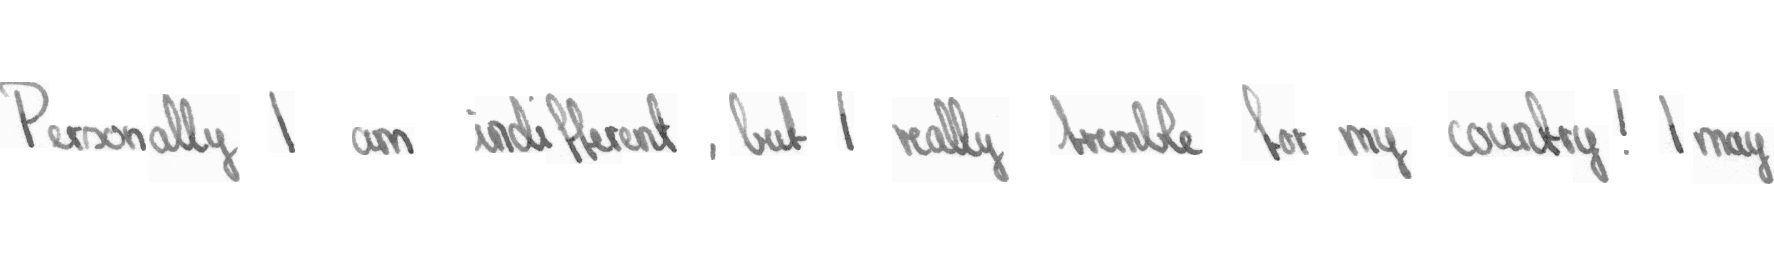 Personally I am indifferent, but I really tremble for my country! I may